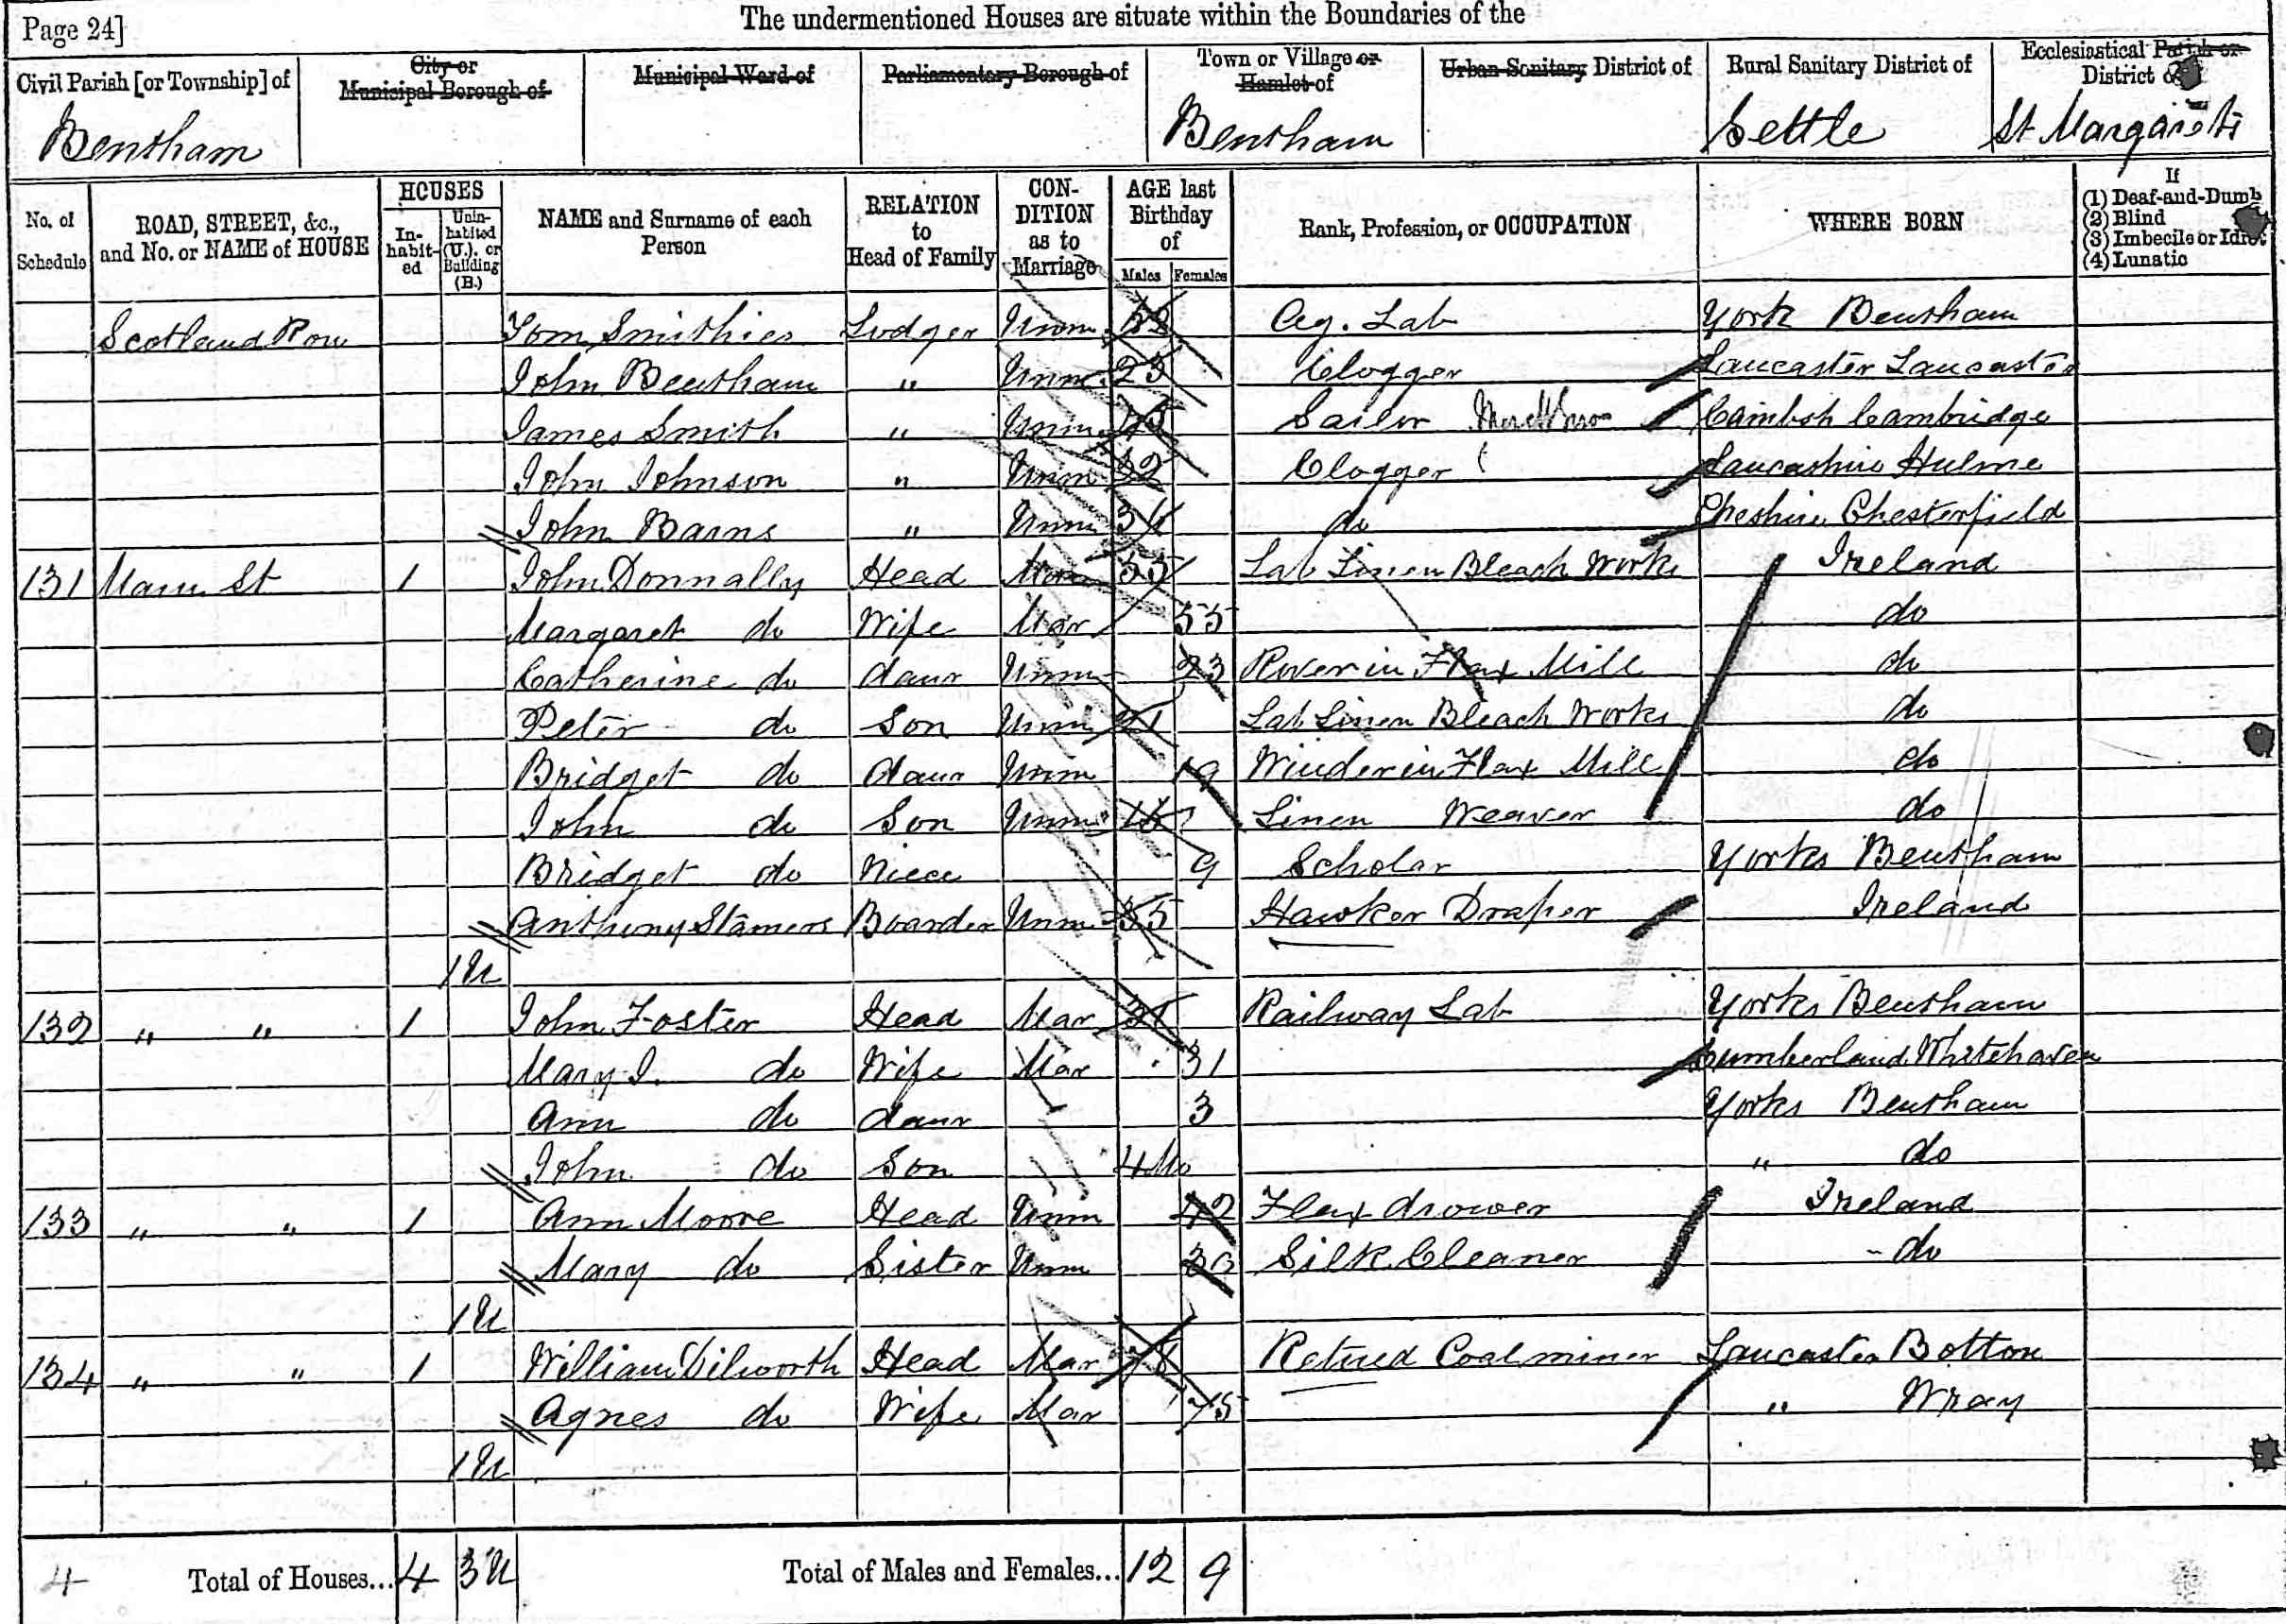 Page 24]
The undermentioned Houses are situate within the Boundaries of the
Civil Parish [or Township] of
City or Municipal Borough of
Municipal Ward of
Parliamentary Borough of
Town or Village or Hamlet of
Urban Sanitary District of
Rural Sanitary District of
Ecclesiastical Parish or District of
Bentham Bentham Settle St Margarets
No. of Schedule
ROAD, STREET, &c., and No. or NAME of HOUSE
HOUSES
In-habit-ed
Unin-habited (U.), or Building (B.)
NAME and Surname of each Person
RELATION to Head of Family
CON-DITION as to Marriage
AGE last Birthday of
Males Females
Rank, Profession, or OCCUPATION
WHERE BORN
If
(1) Deaf-and-Dumb
(2) Blind
(3) Imbecile or Idiot
(4) Lunatic
Scotland Row Tom Smithies Lodger Unm Ag. Lab York Bentham
John Bentham " Unm 23 Clogger Lancaster Lancaster
James Smith " Unm Sailor Cambsh Cambridge
John Johnson " Unm Clogger Lancashire Hulme
John Barns " Unm do Cheshire Chesterfield
131 Main St 1 John Donnally Head Mar 55 Lab Linen Bleach Works Ireland
Margaret do Wife Mar 55 do
Catherine do daur Unm 23 Rover in Flax Mill do
Peter do Son Unm 21 Lab Linen Bleach Works do
Bridget do daur Unm 19 Winder in Flax Mill do
John do Son Unm Linen Weaver do
Bridget do Niece 9 Scholar Yorks Bentham
Anthony Stamers Boarder Unm 35 Hawker Draper Ireland
1U
132 " " 1 John Foster Head Mar Railway Lab Yorks Bentham
Mary J. do Wife Mar 31 Cumberland Whitehaven
Ann do daur 3 Yorks Bentham
John do Son 4 Mo " do
133 " " 1 Ann Moore Head Unm 42 Flax drawer Ireland
Mary do Sister Unm Silk Cleaner do
1U
134 " " 1 William Dilworth Head Mar 78 Retired Coalminer Lancaster Botton
Agnes do Wife Mar 75 " Wray
1U
4 Total of Houses... 4 3U Total of Males and Females... 12 9